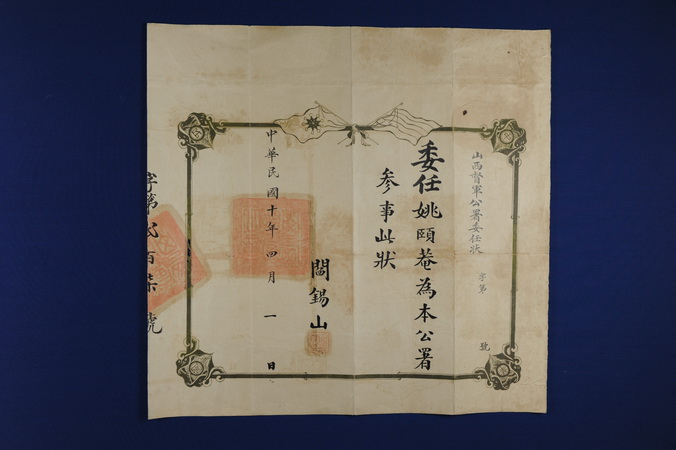 山西督軍公署委任狀 字第 號
委任姚頤菴為本公署
參事此狀
閻錫山
中華民國十年四月一日
字第 百 號